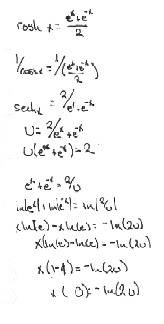 cosh x = (e^x + e^-x)/2
1/cosh x = 1/((e^x + e^-x)/2)
sech x = 2/e^x + e^-x
U = 2/e^x + e^-x
U(e^x + e^-x) = 2
e^x + e^-x = 2/U
ln(e^x) + ln(e^-x) = ln(2/U)
x ln(e) - x ln(e) = -ln(2U)
x(ln(e) - ln(e)) = -ln(2U)
x(1-1) = -ln(2U)
x(0) = -ln(2U)